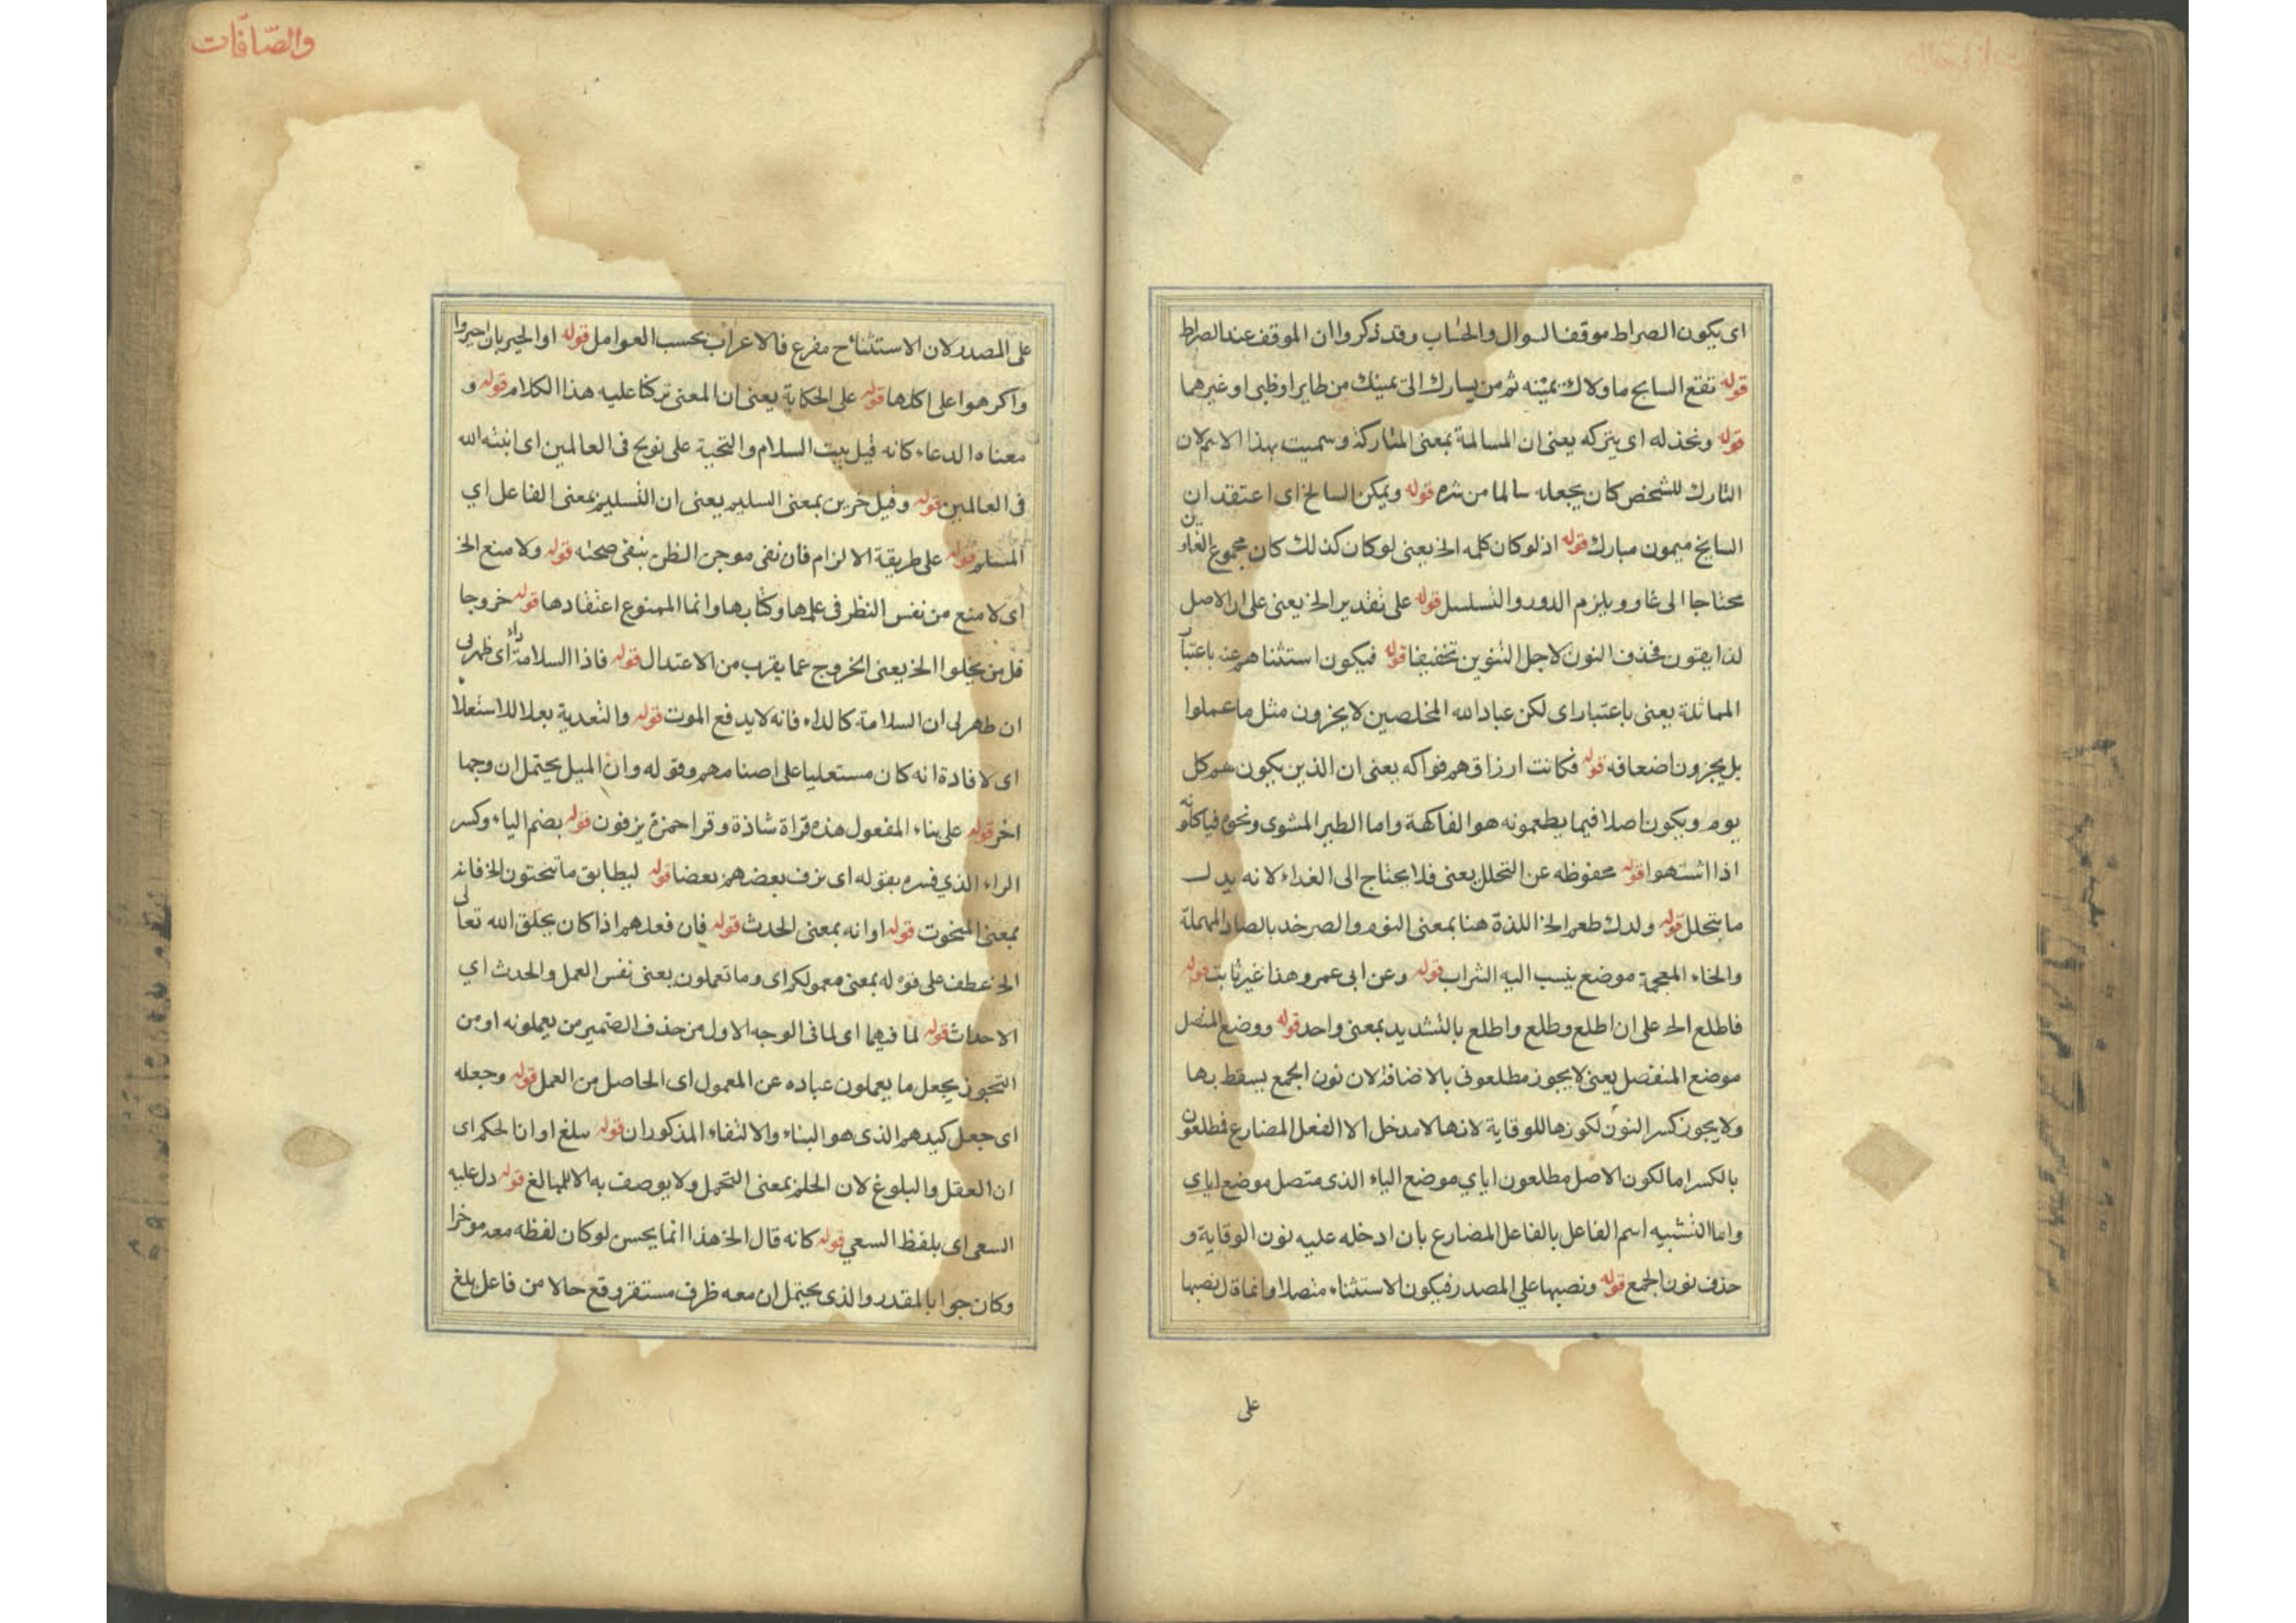 اى يكون الصراط موقفا لسوال والحساب وقد ذكروا ان الموقف عند الصراط
قوله تقع السانح ما ولاك يمينه ثم من يسارك الى يمينك من طاير او ظبى او غيرهما
قوله ونخذله اى يتركه يعنى ان المسالمة بمعنى المتاركة وسميت بهذا الاسم لان
التارك للشخص كان يجعله سالما من شره قوله ويمكن السالخ اى اعتقد ان
السايخ ميمون مبارك قوله اذ لو كان كلمه الخ يعنى لو كان كذلك كان مجموع الغاوين
محتاجا الى غاو ويلزم الدور والتسلسل قوله على تقدير الخ يعنى على ان الاصل
لذايقون فحذف النون لاجل التنوين تخفيفا قوله فيكون استثناهم عنه باعتبار
المماثلة يعنى باعتبار اى لكن عباد الله المخلصين لا يجزون مثل ما عملوا
بل يجزون اضعافه قوله فكانت ارزاقهم فواكه يعنى ان الذين يكون لهم كل
يوم ويكون اصلا فيما يطعمونه هو الفاكهة واما الطير المشوى ونحوه فياكلونه
اذا اشتهوا قوله محفوظه عن التحلل يعنى فلا يحتاج الى الغداء لانه بدل
ما يتحلل قوله ولدك طعم الخ اللذة هنا بمعنى النوم والصرخد بالصاد المهملة
والخاء المعجمة موضع ينسب اليه الشراب قوله وعن ابى عمرو هذا غير ثابت قوله
فاطلع الخ على ان اطلع وطلع واطلع بالتشديد بمعنى واحد قوله ووضع المتصل
موضع المنفصل يعنى لا يجوز مطلعونى بالاضافة لان نون الجمع يسقط بها
ولا يجوز كسر النون لكونها للوقاية لانها لا مدخل الا الفعل المضارع فمطلعون
بالكسر اما لكون الاصل مطلعون اياي موضع الياء الذى متصل موضع اياي
واما التشبيه اسم الفاعل بالفاعل المضارع بان ادخله عليه نون الوقاية و
حذف نون الجمع قوله ونصبها على المصدر فيكون الاستثناء متصلا وانما قال نصبها
على
والصّافات
على المصدر لان الاستثناء ح مفرغ فالاعراب بحسب العوامل قوله او الخير بان اجبروا
واكرهوا على اكلها قوله على الحكاية يعنى ان المعنى تركنا عليه هذا الكلام قوله و
معناه الدعاء كانه قيل يبث السلام والتحية على نوح فى العالمين اى ابثه الله
فى العالمين قوله وقيل حزين بمعنى السليم يعنى ان التسليم بمعنى الفاعل اي
المستلم قوله على طريقة الالزام فان نفى موجن الظن بنفى صحته قوله ولا منع الخ
اى لا منع من نفس النظر فى علمها وكتابها وانما الممنوع اعتقادها قوله خروجا
قل من يخلوا الخ يعنى الخروج عما يقرب من الاعتدال قوله فاذا السلامة داء اى ظهر لى
ان ظهر لى ان السلامة كالداء فانه لا يدفع الموت قوله والتعدية بعلا للاستعلا
اى لافادة انه كان مستعليا على اصنامهم وقوله وان الميل يحتمل ان وجما
اخر قوله على بناء المفعول هذه قراة شاذة وقرا حمزة يزفون قوله بضم الياء وكسر
الراء الذي فسره بقوله اى يزف بعضهم بعضا قوله ليطابق ما تنحتون الخ فانه
بمعنى المنحوت قوله او انه بمعنى الحدث قوله فان فعلهم اذا كان بخلق الله تعالى
الخ عطف على قوله بمعنى معمولكم اى وما تعملون يعنى نفس العمل والحدث اي
الاحداث قوله لما فيهما اى لما فى الوجه الاول من حذف الضمير من يعملونه او من
التجوز بجعل ما يعملون عباده عن المعمول اى الحاصل من العمل قوله وجعله
اى جعل كيدهم الذى هو البناء والالقاء المذكوران قوله بلغ او ان الحكم اى
ان العقل والبلوغ لان الحلم بمعنى التحمل ولا يوصف به الا البالغ قوله دل عليه
السعى اى بلفظ السعي قوله كانه قال الخ هذا انما يحسن لو كان لفظه معه موخرا
وكان جوابا لمقدر والذى يحتمل ان معه ظرف مستقر وقع حالا من فاعل بلغ